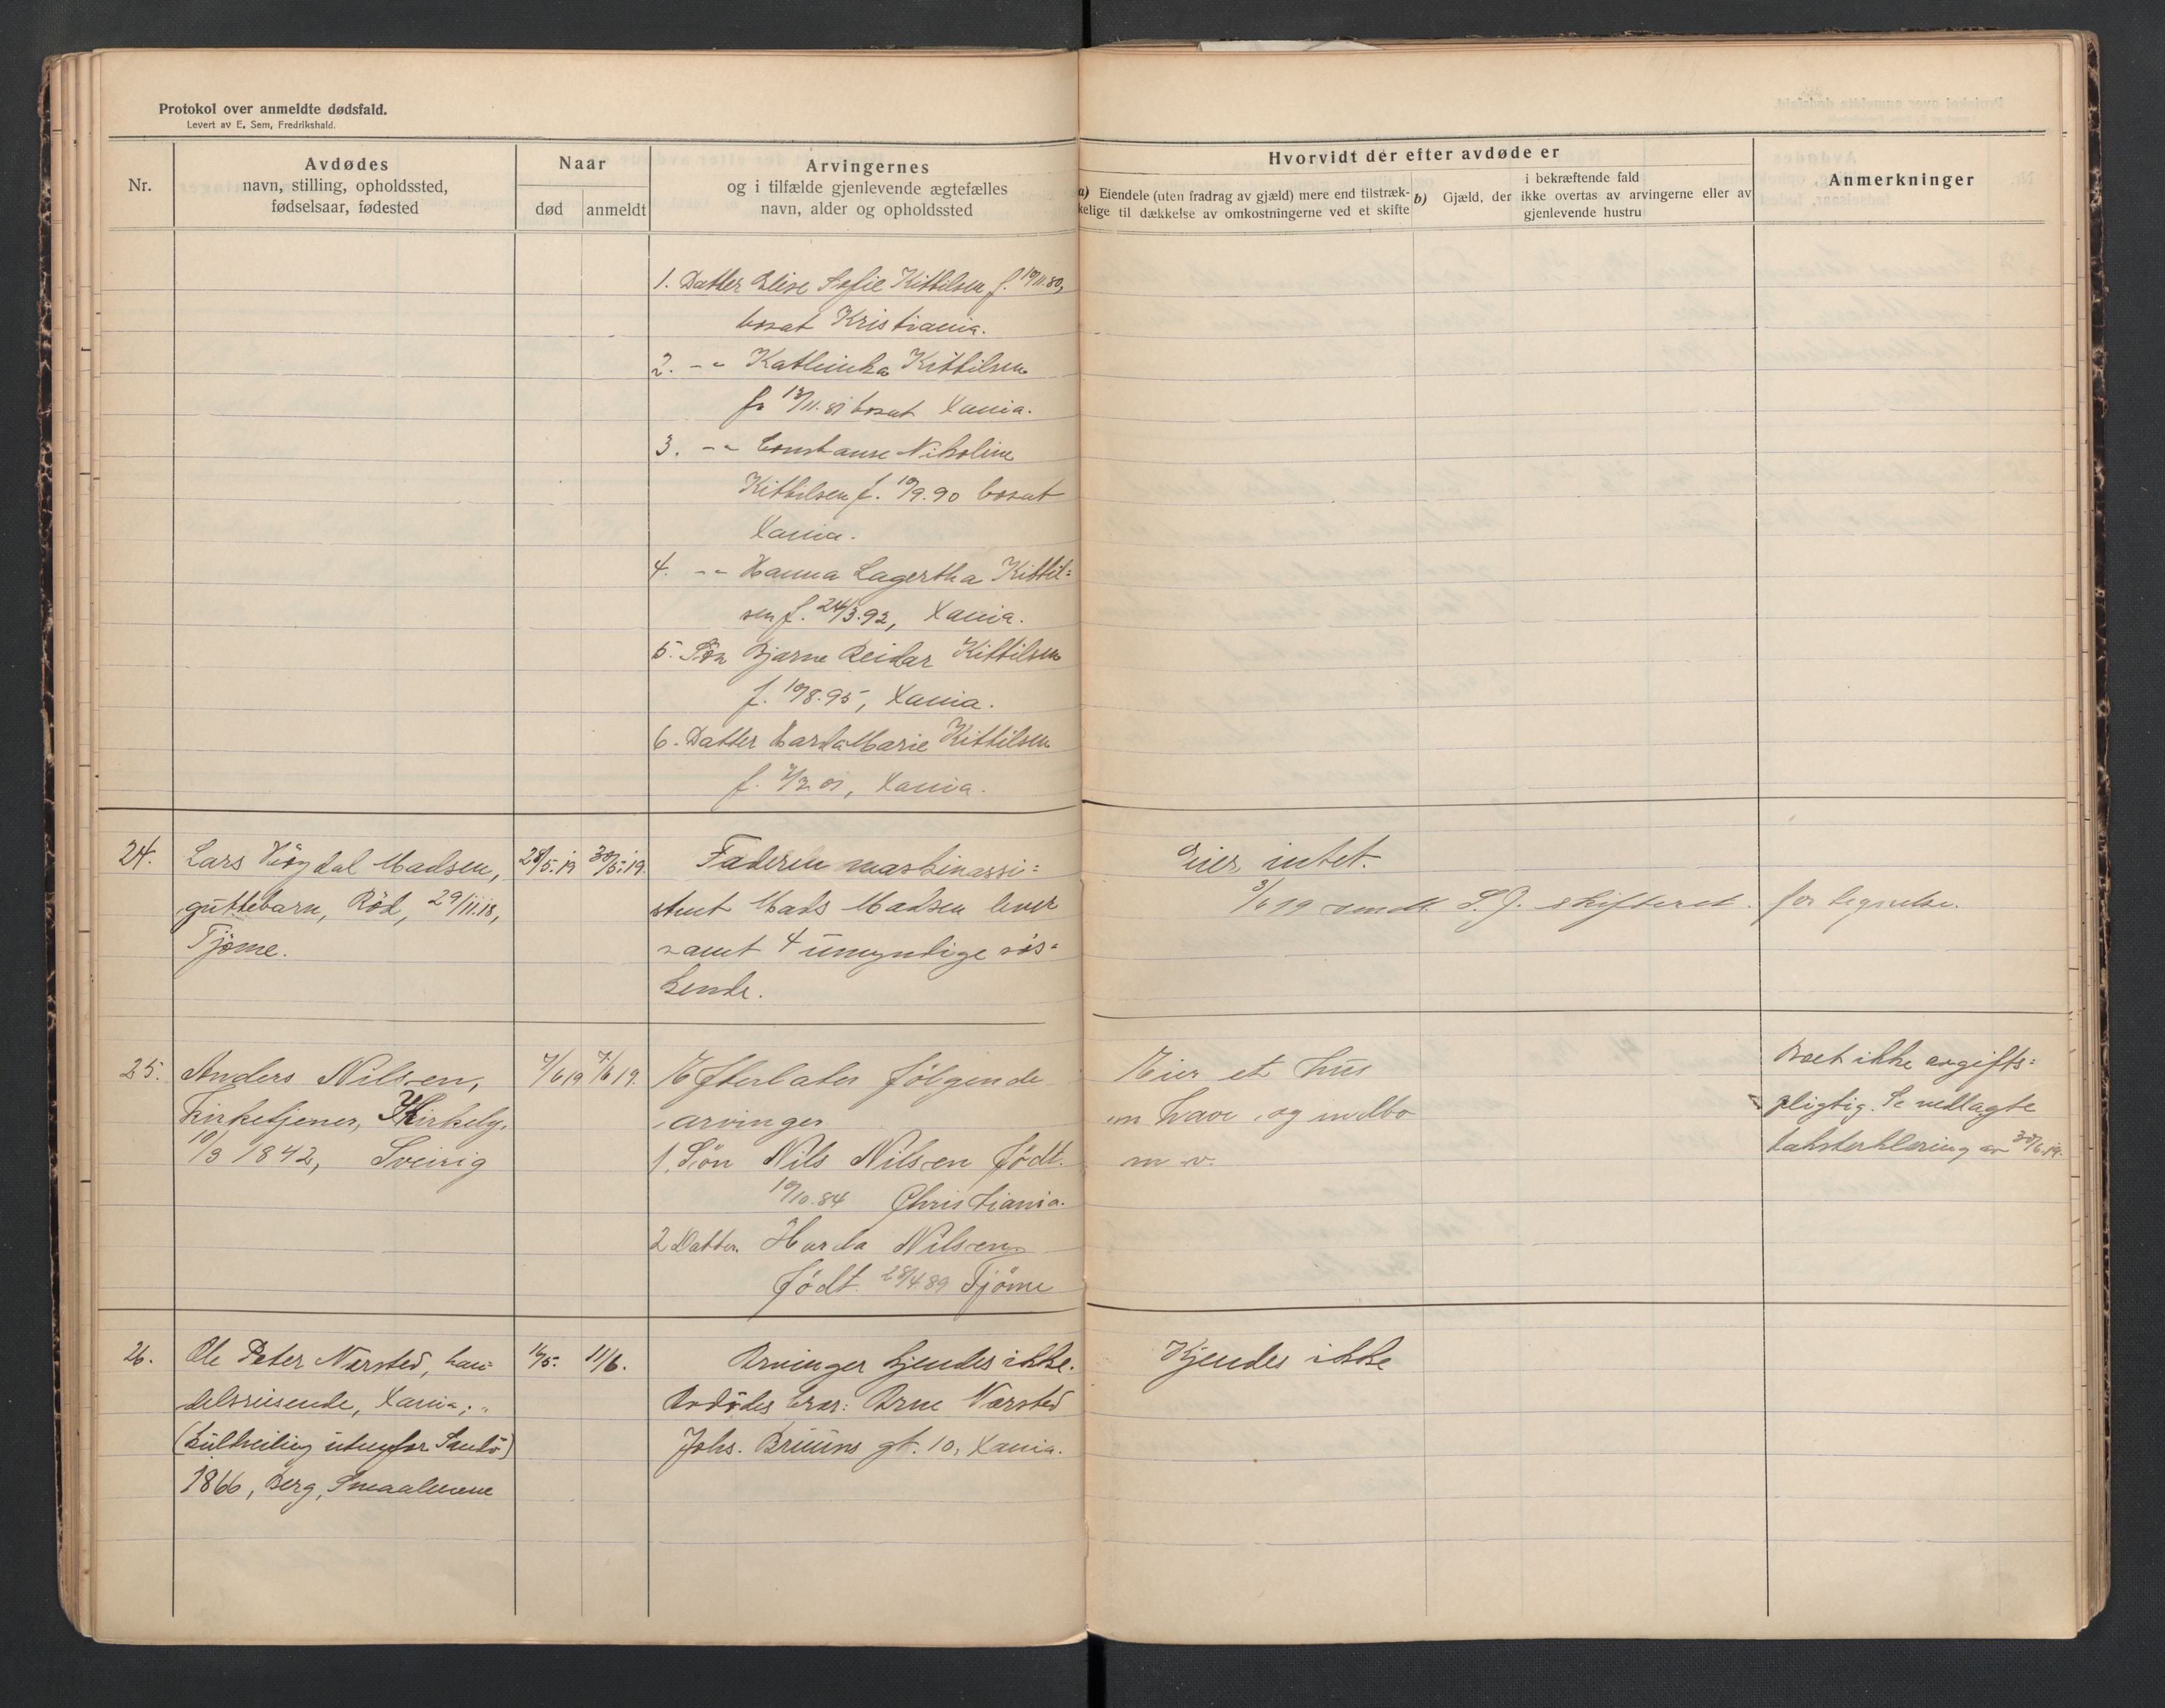 Protokol over anmeldte dødsfald.
Levert av E. Sem, Fredrikshald.
Nr.
Avdødes
navn, stilling, opholdssted,
fødselsaar, fødested
Naar
død
anmeldt
Arvingernes
og i tilfælde gjenlevende ægtefælles
navn, alder og opholdssted
Hvorvidt der efter avdøde er
a) Eiendele (uten fradrag av gjæld) mere end tilstræk-
kelige til dækkelse av omkostningerne ved et skifte
i bekræftende fald
b) Gjæld, der ikke overtas av arvingerne eller av
gjenlevende hustru
Anmerkninger
1. Datter Elise Sofie Kittilsen f. 19/11.80,
bosat Kristiania.
2. -"- Kathinka Kittilsen
bosat Xania.
3. -"- Constanse Nikoline
Kittilsen f. 19/9.90 bosat
Xania.
4. -"- Hanna Lagertha Kittil=
sen f. 24/3.92, Xania.
5. Søn Bjarne Reidar Kittilsen
f. 19/8.95, Xania.
6. Datter Marie Kittilsen
Xania.
24.
Lars Madsen,
guttebarn, Röd, 29/11.18,
Tjøme.
28/5.19
30/5.19.
Faderen maskinassi=
stent Mads Madsen lever
samt 4 umyndige sös=
kende.
Eier intet.
3/6 19 sendt S. J. skifteret. for tegnelse.
25.
Anders Nilsen,
Kirketjener, Kirkely,
10/3 1842, Sverig
7/6 19
7/6 19.
Efterlater følgende
arvinger
1. Søn Nils Nilsen Født.
19/10.84 Christiania.
2 Datter. Nilsen
Født. 28/4.89 Tjöme
Eier et hus
m have, og indbo
m. v.
Boet ikke avgifts=
pligtig. Se vedlagte
taksterklæring av 30/6.19.
26.
Ole Peter Nærsted, han=
delsreisende, Xania;
(Kulseiling utenfor Sandö)
1866, Berg, Smaalenene
11/6.
Arvinger kjendes ikke.
Avdödes bror: Arne Nærsted
Johs. Bruuns gt. 10, Xania.
Kjendes ikke